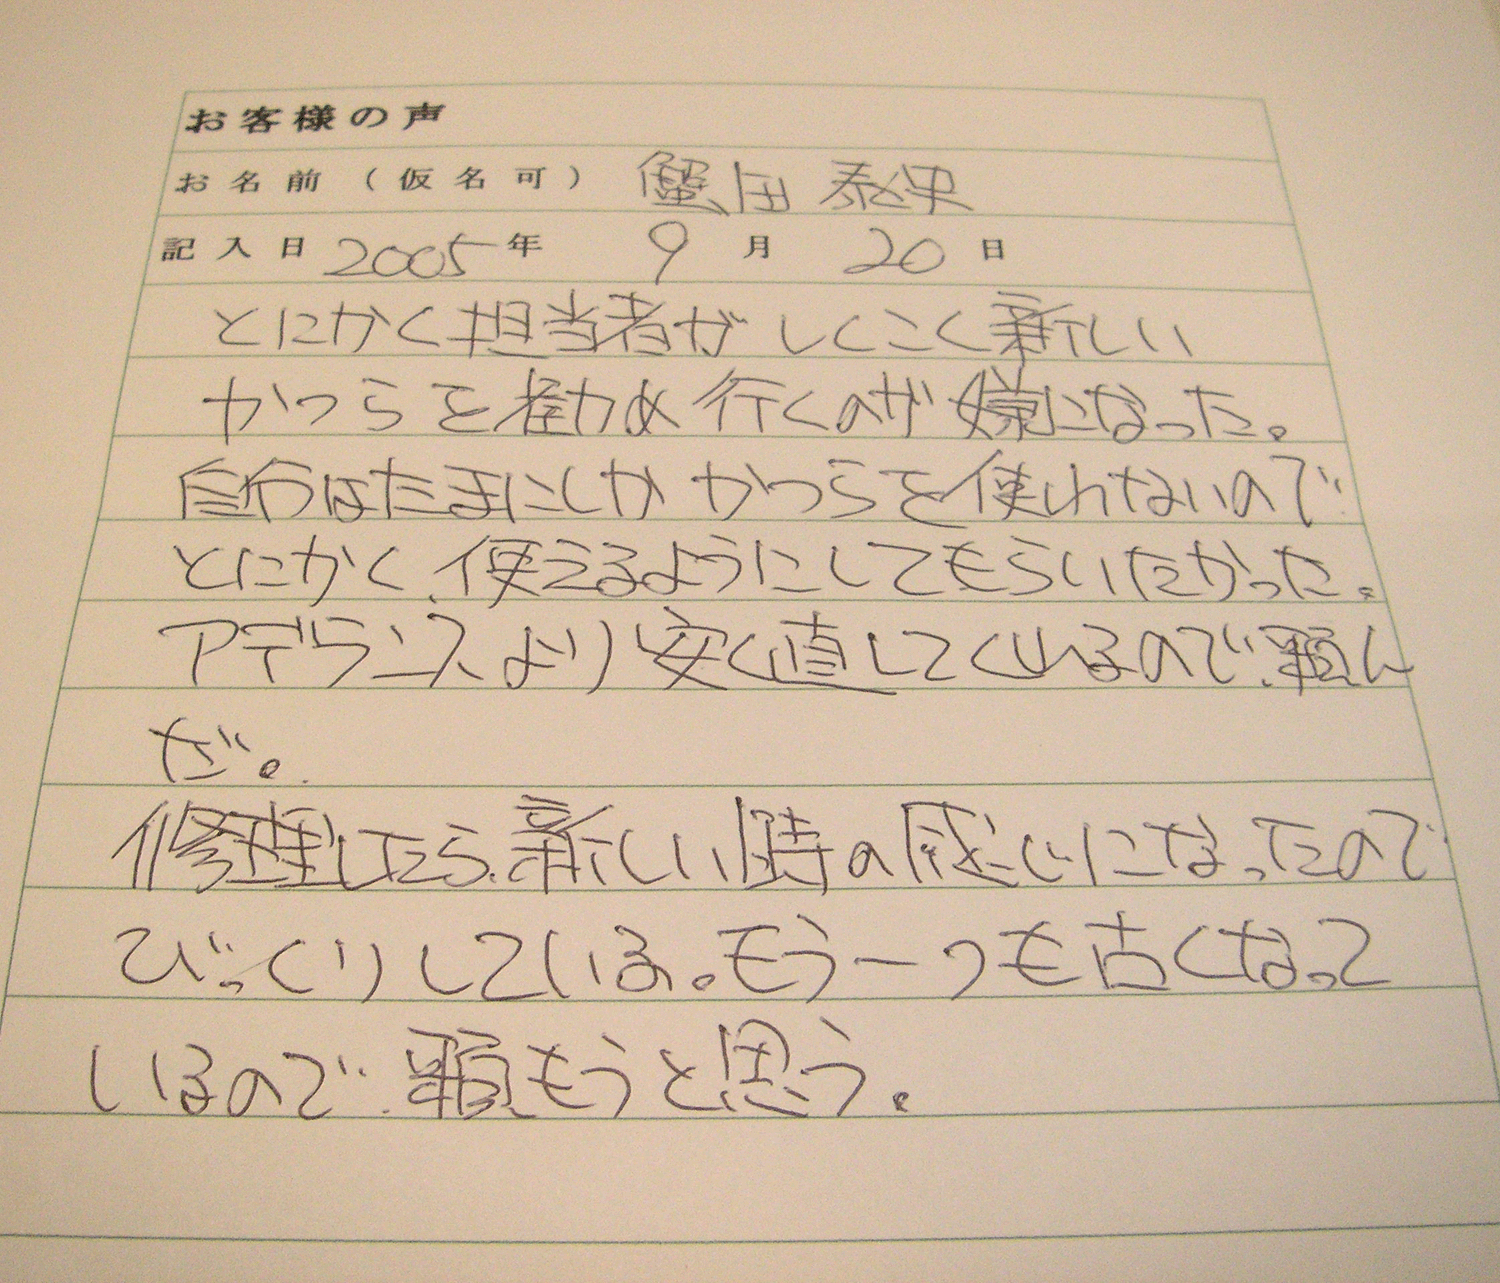 お客様の声
お名前（仮名可） 蟹田 泰史
記入日 2005年 9月 20日
とにかく担当者がしくこく新しい
かつらを勧め行くのが嫌になった。
自分はたまにしかかつらを使わないので
とにかく、使えるようにしてもらいたかった。
アデランスより安く直してくれるので、頼ん
だ。
修理したら、新しい時の感じになったので
びっくりしている。もう一つも古くなって
いるので、頼もうと思う。